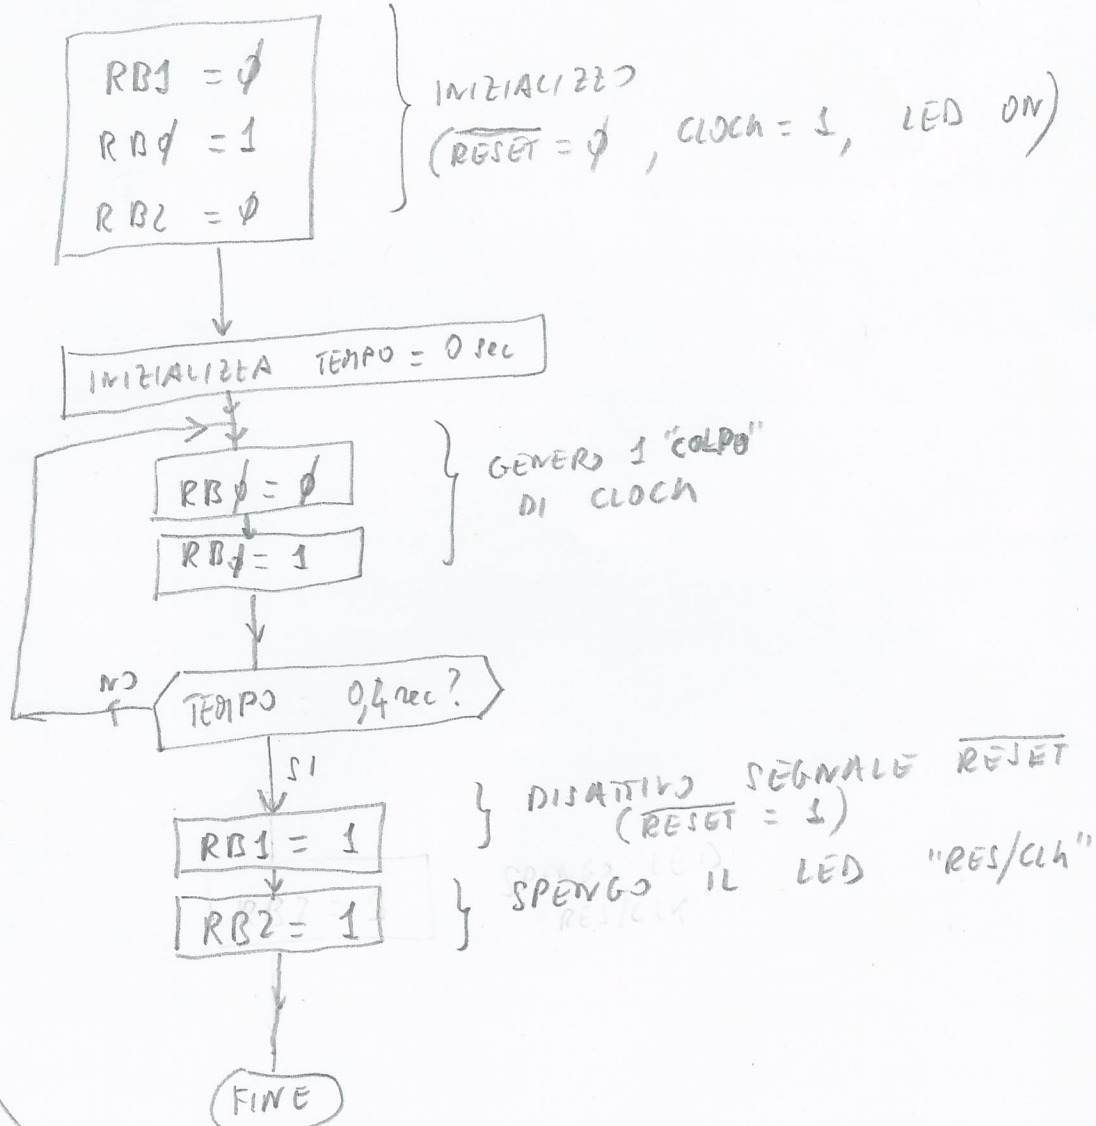 RB1 = ∅
RB∅ = 1
RB2 = ∅
INIZIALIZZO
(RESET = ∅, CLOCK = 1, LED ON)
INIZIALIZZA TEMPO = 0 sec
RB∅ = ∅
RB∅ = 1
GENERO 1 "COLPO"
DI CLOCK
NO
TEMPO 0,4 sec?
SI
RB1 = 1
DISATTIVO SEGNALE RESET
(RESET = 1)
RB2 = 1
SPENGO IL LED "RES/Clk"
FINE